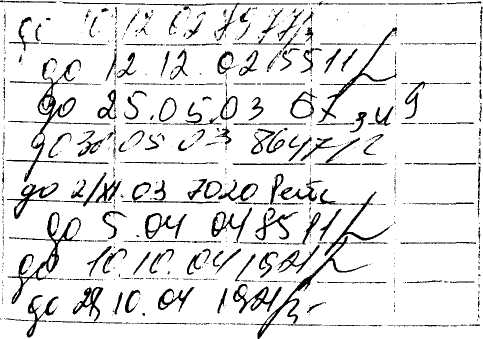 до 10.12.02 7577/2
до 12.12.02 15511/2
до 25.05.03 67 зи 9
до 30 05 03 8647/2
до 2/XI.03 7020
до 5.04 04 8511/2
до 10.10.04 1921/2
до 29.10.04 1921/2